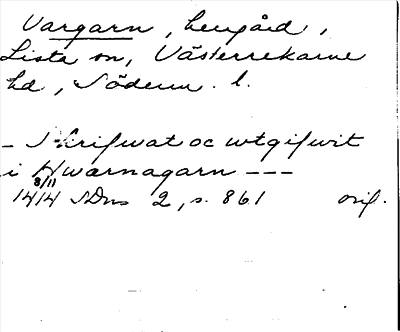 Vargarn, herrgård,
Lista sn, Västerrekarne
hd, Söderm. l.
- Skrifwat oc wtgifwit
i Hwarnagarn ---
8/11
1414 SDns 2, s. 861 orig.